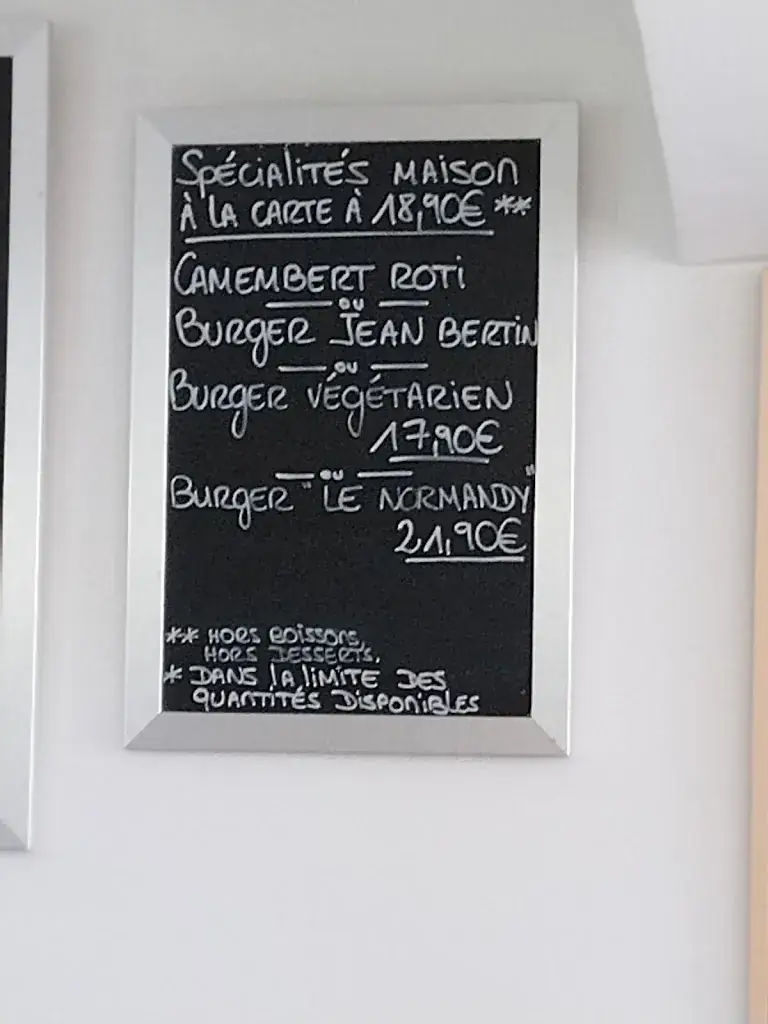 SPÉCIALITÉS MAISON
À LA CARTE À 18,90€ **
CAMEMBERT ROTI
— ou —
BURGER JEAN BERTIN
— ou —
BURGER VÉGÉTARIEN
17,90€
— ou —
BURGER "LE NORMANDY"
21,90€
** HORS BOISSONS,
HORS DESSERTS.
* DANS LA LIMITE DES
QUANTITÉS DISPONIBLES